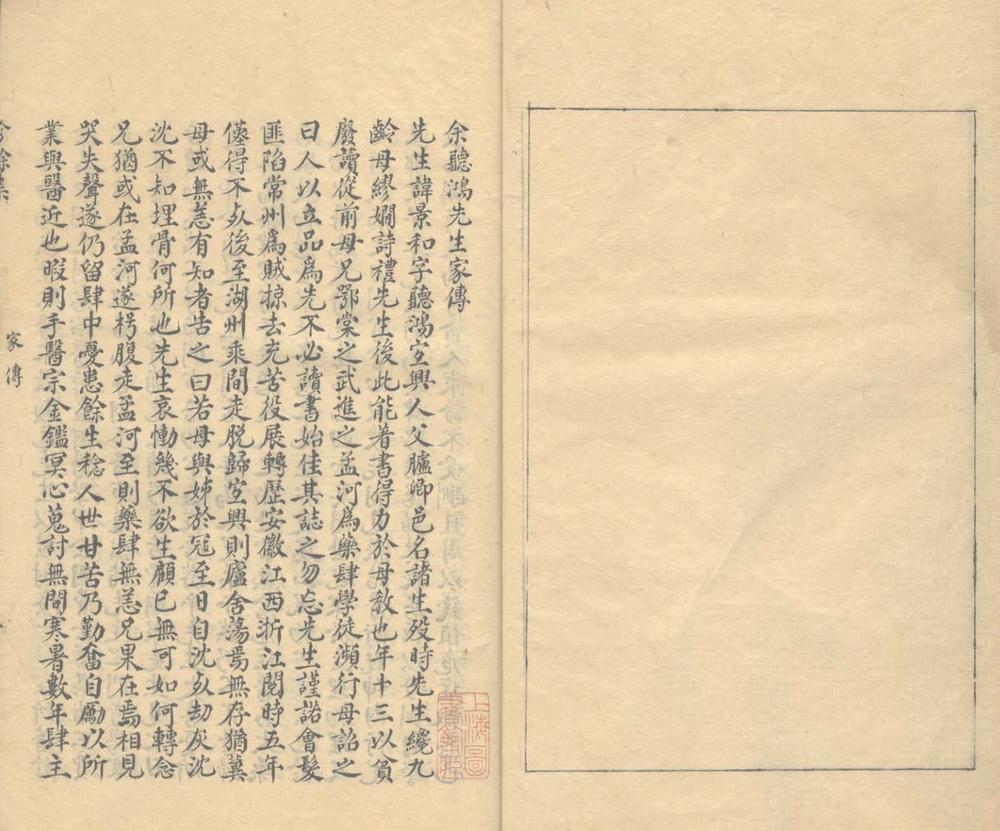 余聽鴻先生家傳
先生諱景和字聽鴻宜興人父臚卿邑名諸生歿時先生纔九
齡母繆嫺詩禮先生後此能著書得力於母敎也年十三以貧
廢讀從前母兄鄂棠之武進之孟河爲藥肆學徒瀕行母詔之
曰人以立品爲先不必讀書始佳其誌之勿忘先生謹諾會髮
匪陷常州爲賊掠去充苦役展轉歷安徽江西浙江閱時五年
僅得不死後至湖州乘間走脫歸宜興則廬舍蕩焉無存猶冀
母或無恙有知者告之曰若母與姊於冦至日自沈死劫灰沈
沈不知埋骨何所也先生哀慟幾不欲生顧已無可如何轉念
兄猶或在孟河遂枵腹走孟河至則藥肆無恙兄果在焉相見
哭失聲遂仍留肆中憂患餘生稔人世甘苦乃勤奮自勵以所
業與醫近也暇則手醫宗金鑑冥心蒐討無間寒暑數年肆主
家傳
上海圖